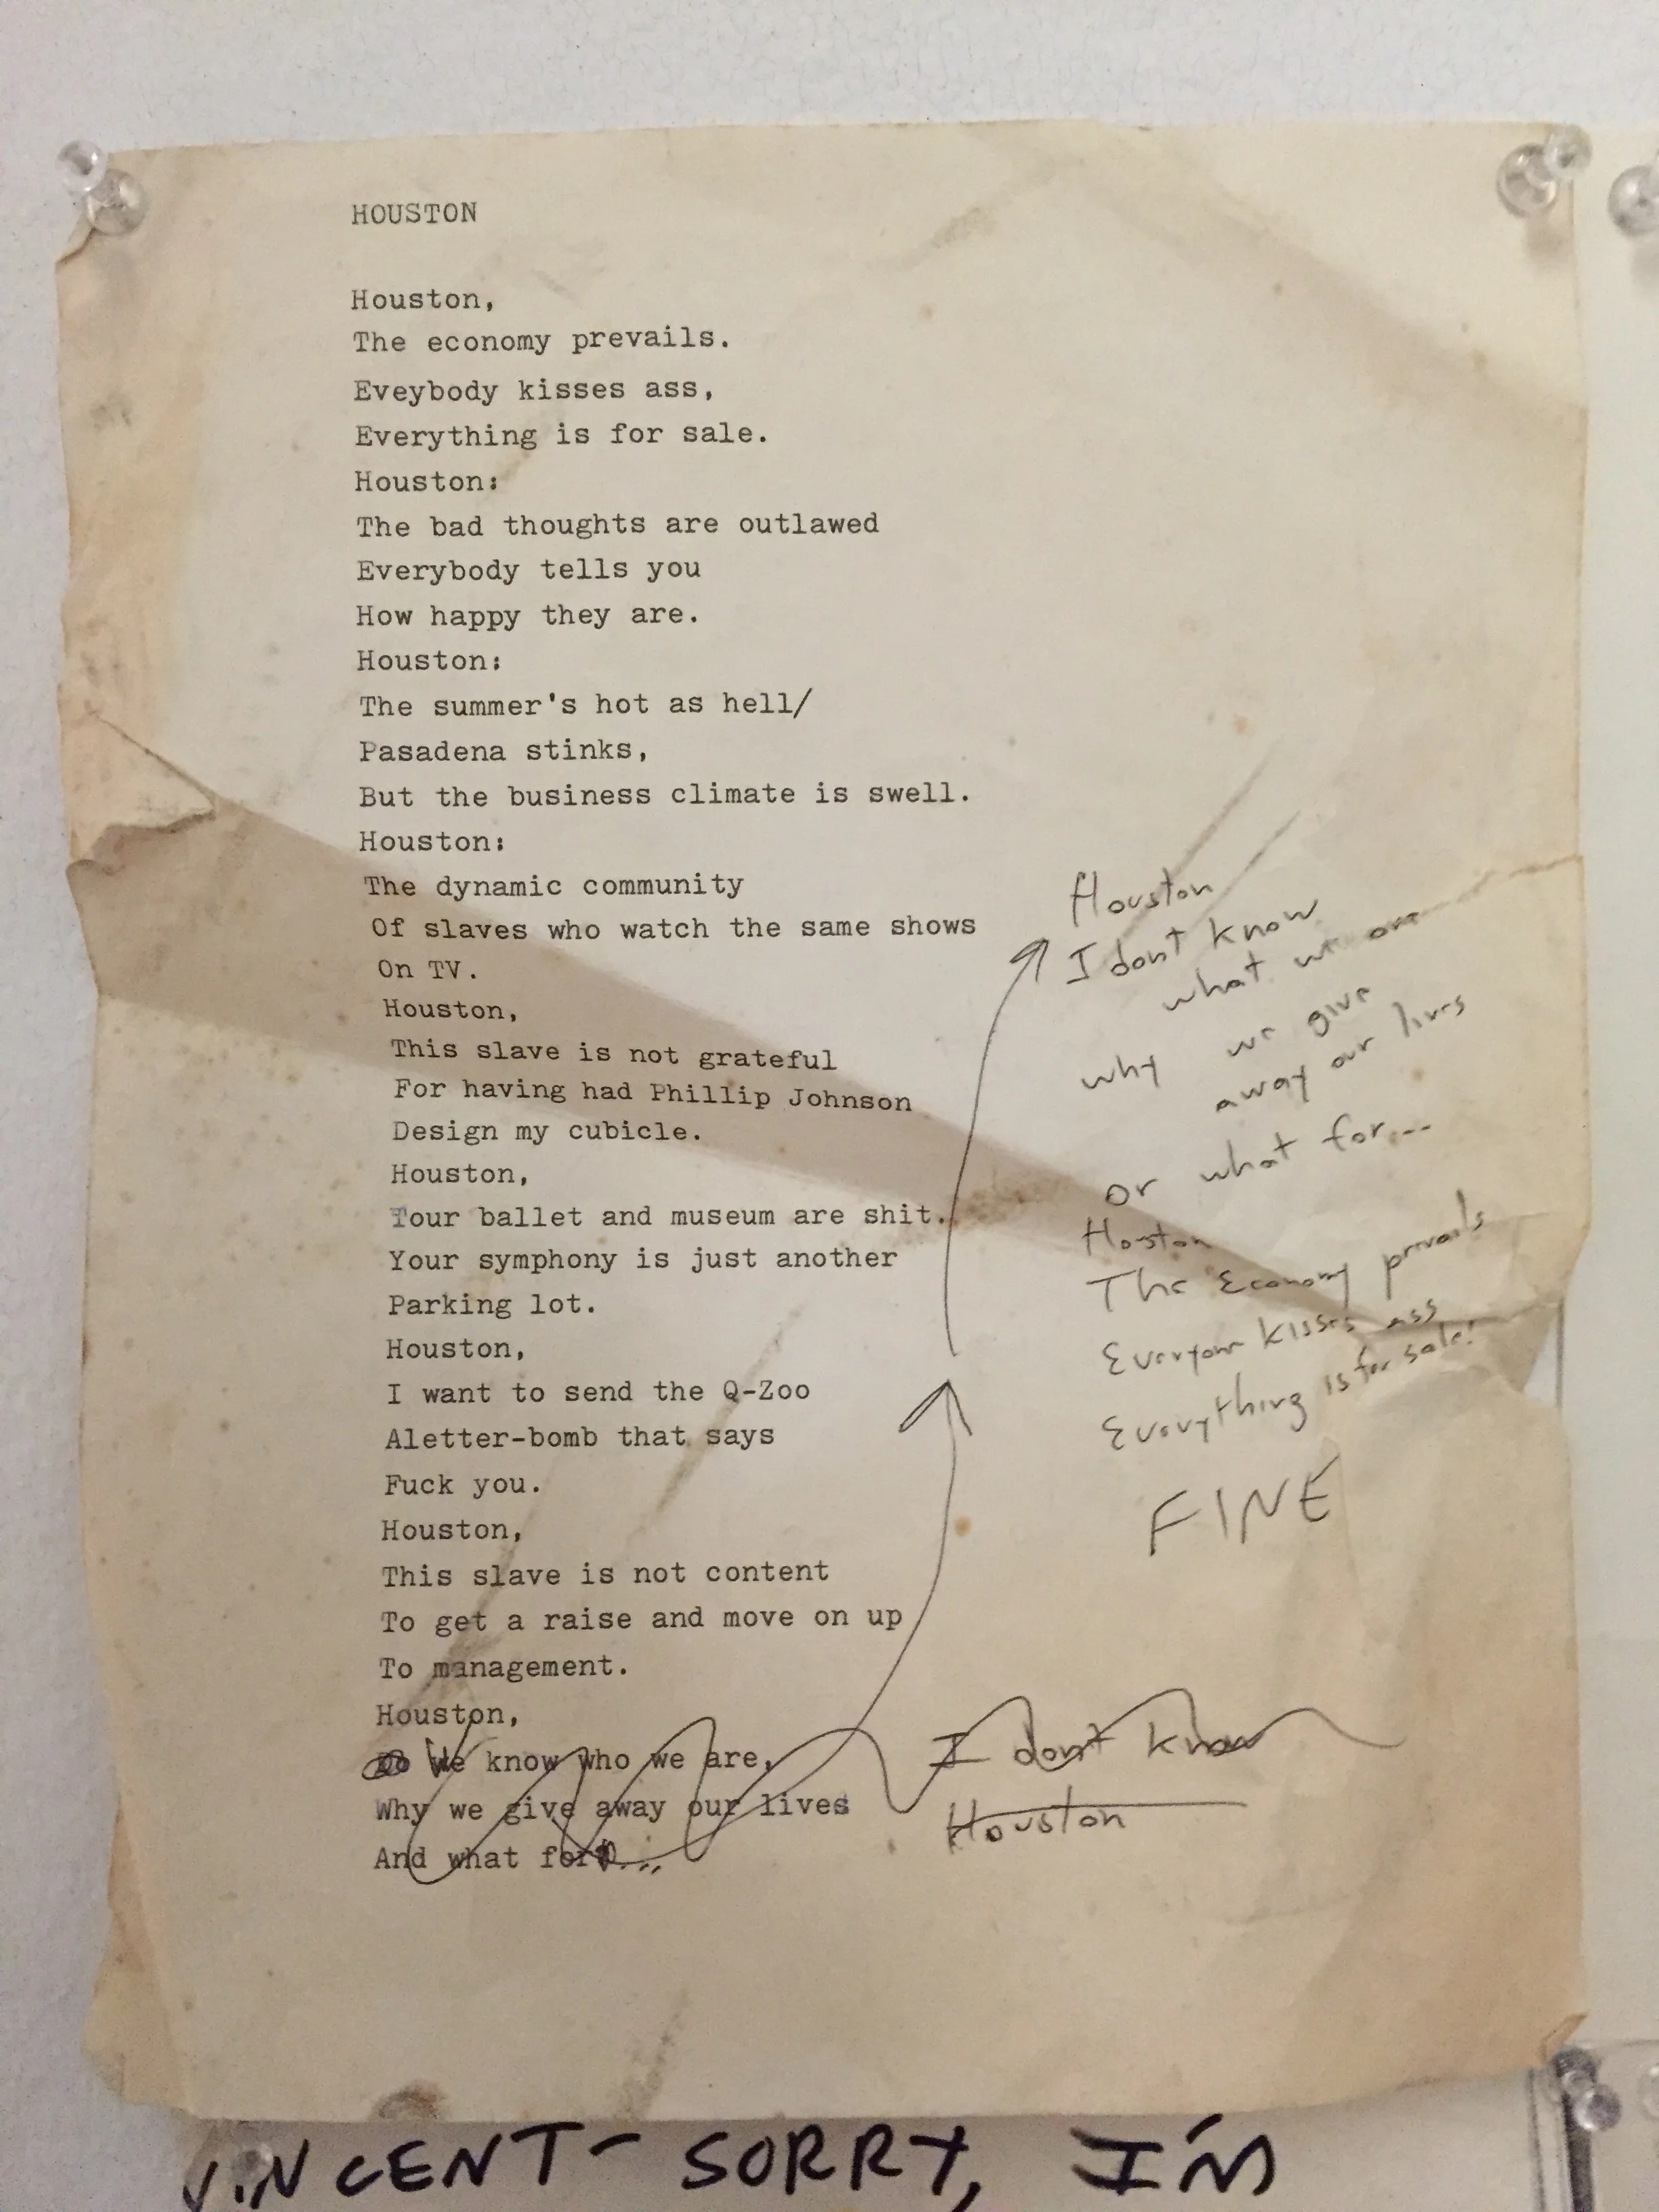 HOUSTON
Houston,
The economy prevails.
Eveybody kisses ass,
Everything is for sale.
Houston:
The bad thoughts are outlawed
Everybody tells you
How happy they are.
Houston:
The summer's hot as hell/
Pasadena stinks,
But the business climate is swell.
Houston:
The dynamic community
Of slaves who watch the same shows
On TV.
Houston,
This slave is not grateful
For having had Phillip Johnson
Design my cubicle.
Houston,
Your ballet and museum are shit.
Your symphony is just another
Parking lot.
Houston,
I want to send the Q-Zoo
Aletter-bomb that says
Fuck you.
Houston,
This slave is not content
To get a raise and move on up
To management.
Houston,
Do We know who we are,
Why we give away our lives
And what for...
I dont know
Houston
Houston
I dont know
what we are
why we give
away our lives
or what for...
Houston
The Economy prevails
Everyone kisses ass
Everything is for sale!
FINE
VINCENT- SORRY, I'M